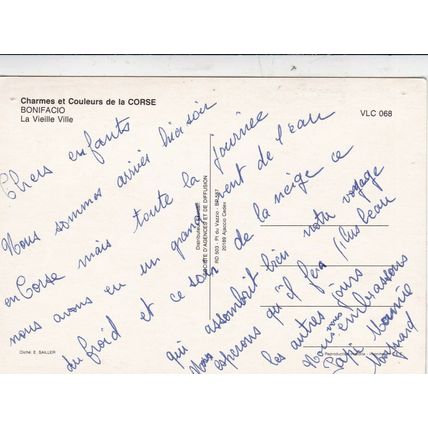 Charmes et Couleurs de la CORSE
BONIFACIO
La Vieille Ville
VLC 068
Chers enfants
Nous sommes arrivés hier soir
en Corse mais toute la journée
nous avons eu un grand vent de l'eau
du froid et ce soir de la neige ce
qui assombrit bien notre voyage
Nous esperons qu'il fera plus beau
les autres jours
Nous vous embrassons
Papi Mamie
Maynard
Cliché: E. SAILLER
SOCIETE D'AGENCES ET DE DIFFUSION
RD 503 - Pt du Vazzio
20189 Ajaccio Cedex